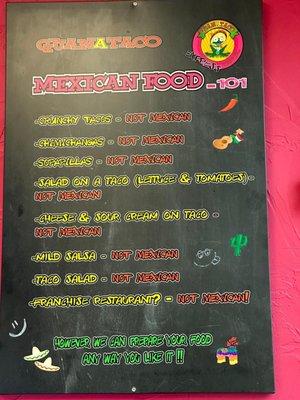 GUAMATACO
MEXICAN FOOD -101
-CRUNCHY TACOS - NOT MEXICAN
-CHIMICHANGAS - NOT MEXICAN
-SOPAPILLAS - NOT MEXICAN
-SALAD ON A TACO (LETTUCE & TOMATOES) -
NOT MEXICAN
-CHEESE & SOUR CREAM ON TACO -
NOT MEXICAN
-MILD SALSA - NOT MEXICAN
-TACO SALAD - NOT MEXICAN
-FRANCHISE RESTAURANT? - NOT MEXICAN!
HOWEVER WE CAN PREPARE YOUR FOOD
ANY WAY YOU LIKE IT !!